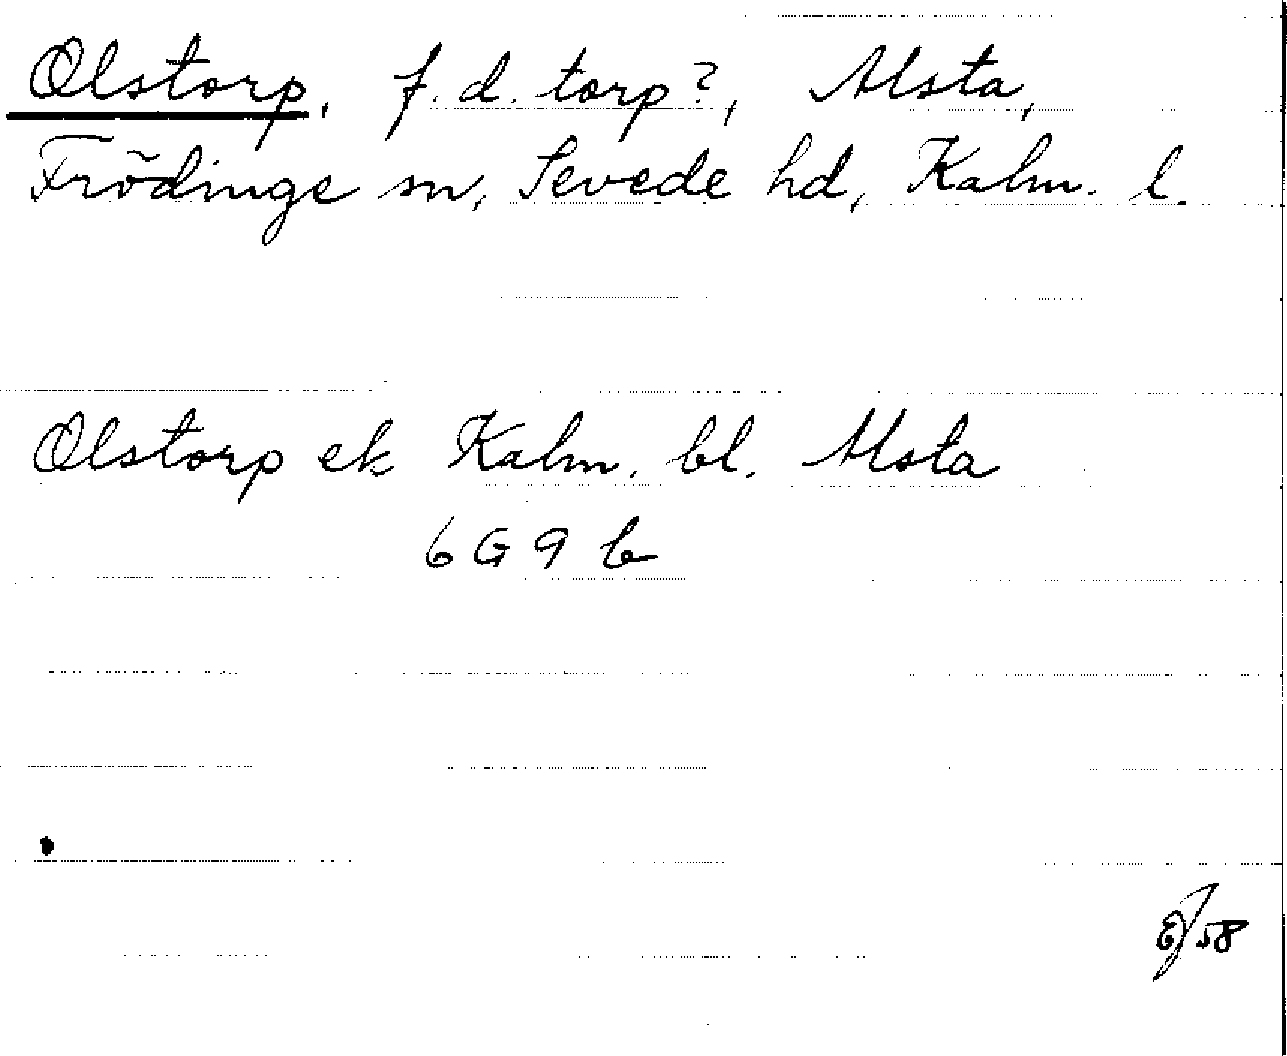 Olstorp, f.d. torp?, Alsta,
Frödinge sn, Sevede hd, Kalm. l.
Olstorp ek Kalm. bl. Alsta
6G9b
/58